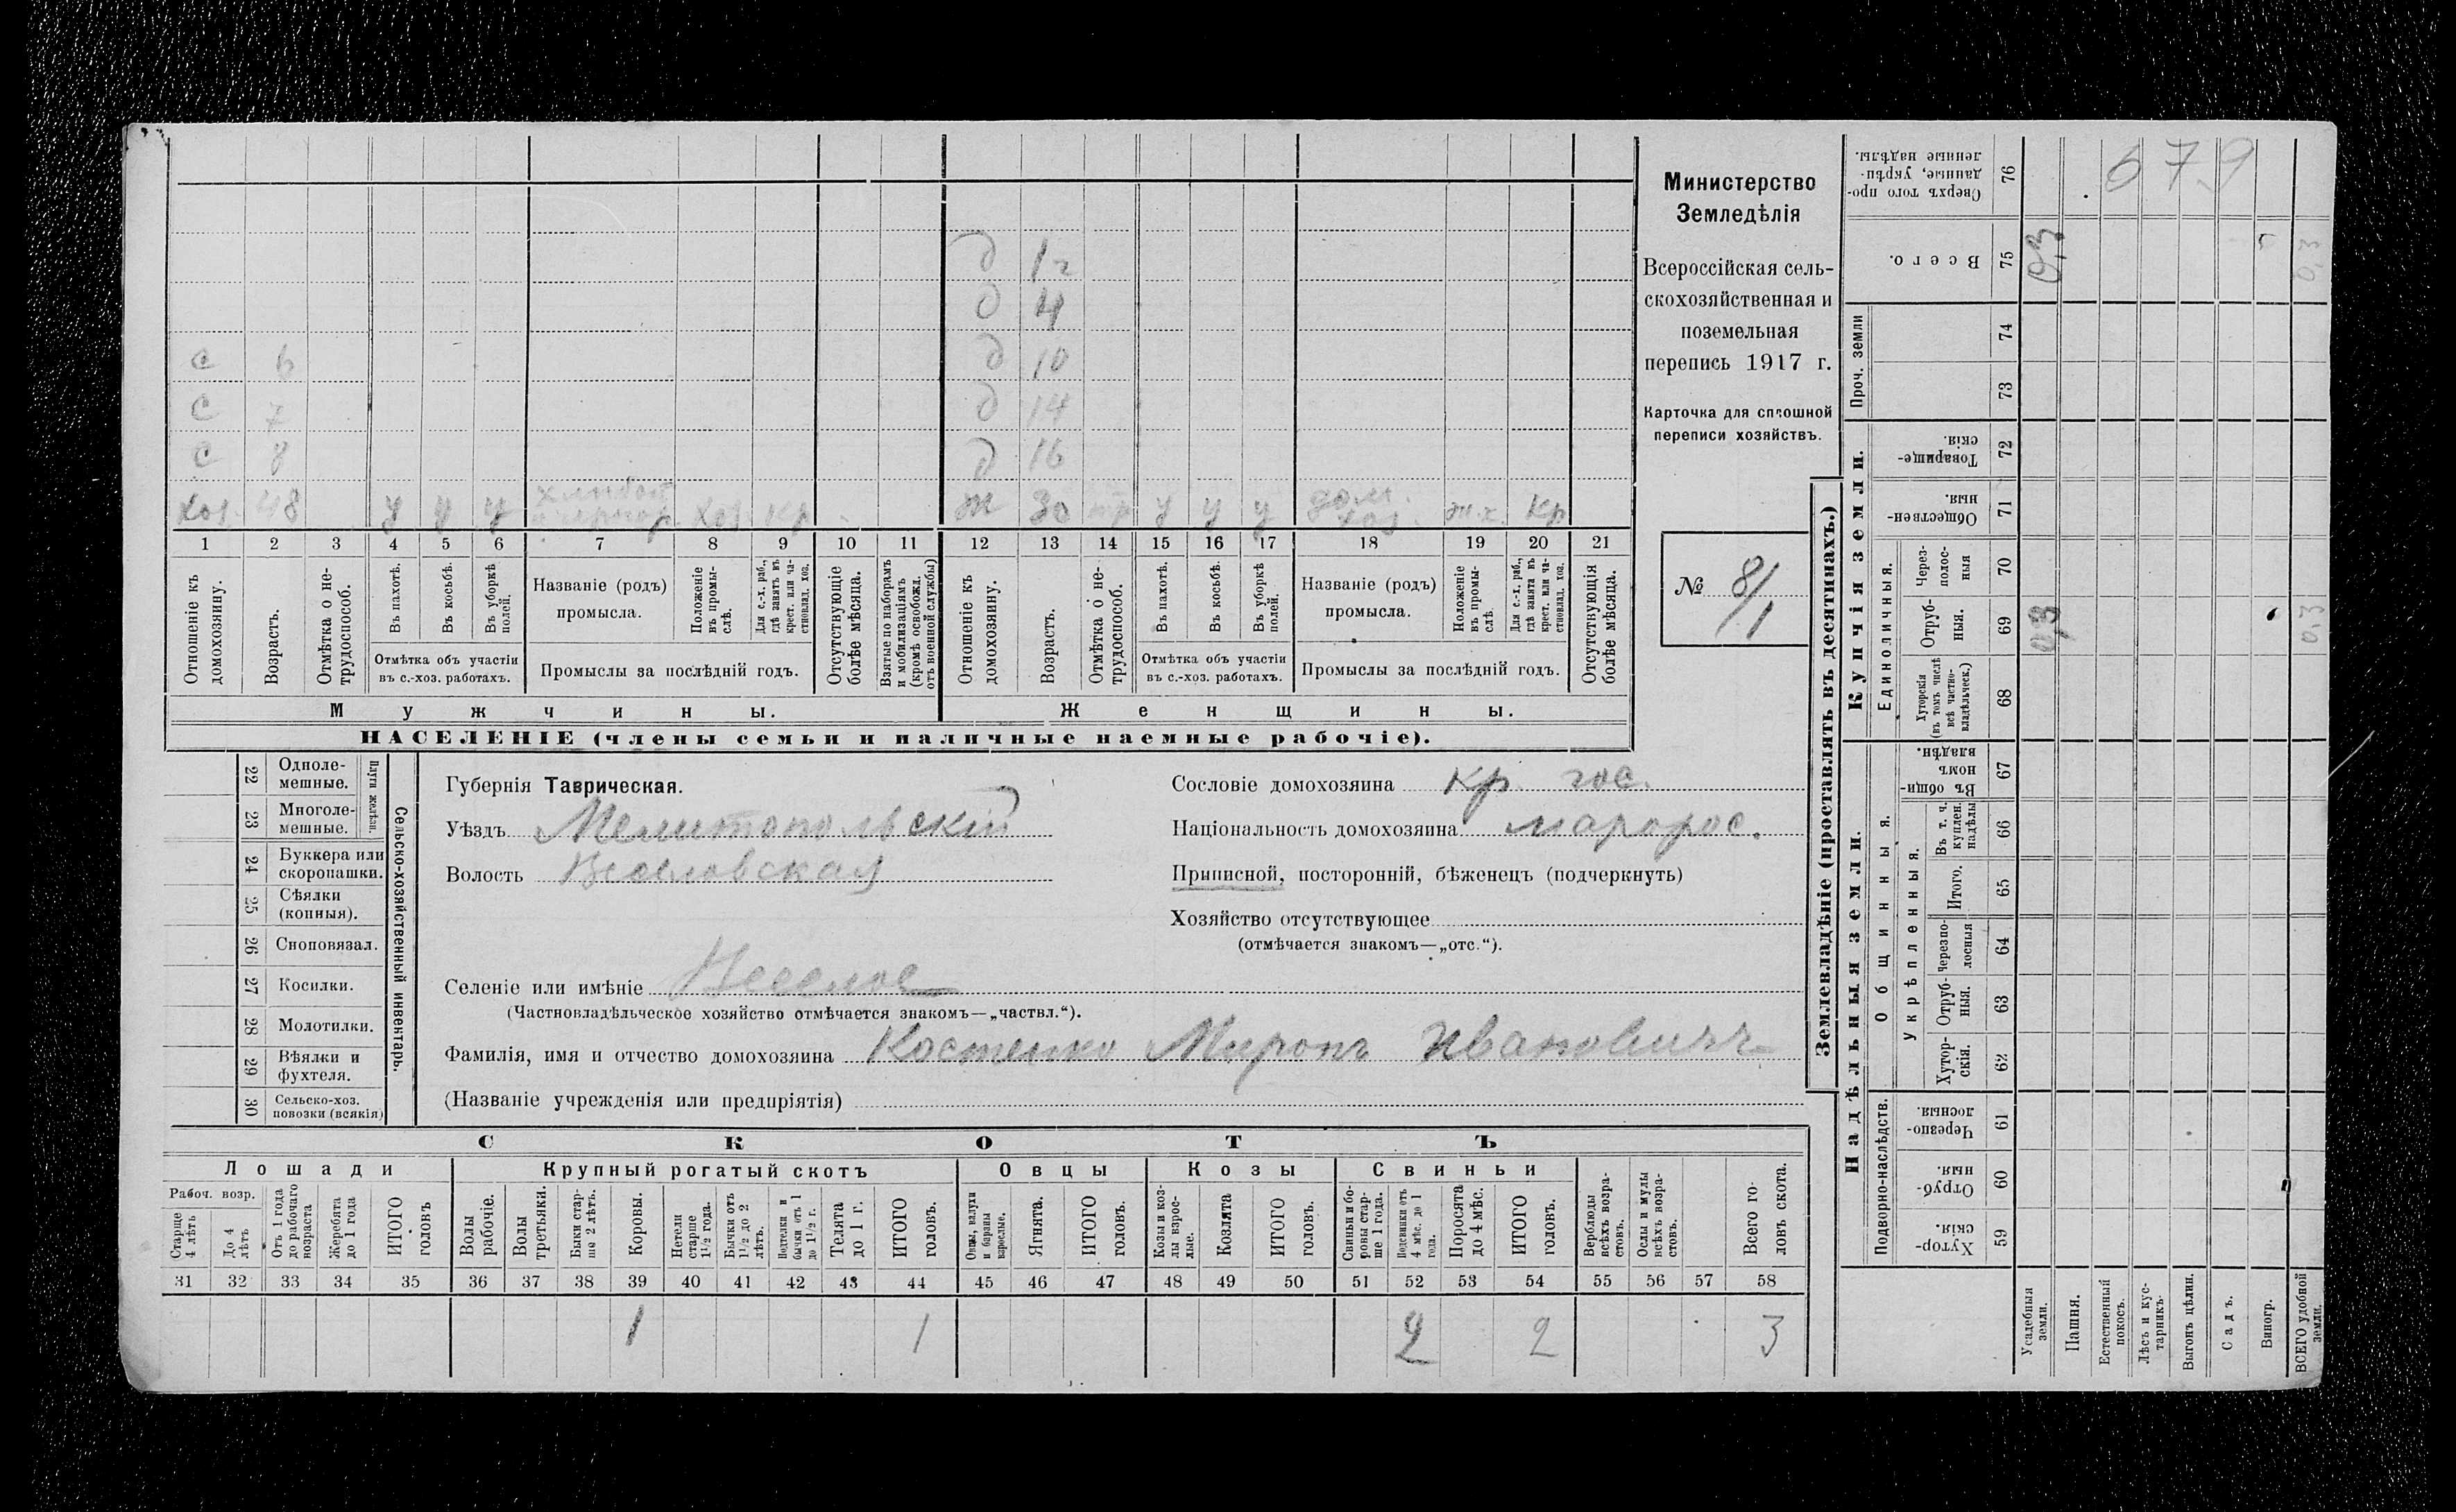 д 1 г
д 4
с 6 д 10
с 7 д 14
с 8 д 16
хоз. 48 у у у хоз. кр ж 30 у у у дом. хоз. кр
1 2 3 4 5 6 7 8 9 10 11 12 13 14 15 16 17 18 19 20 21
Отношеніе къ домохозяину.
Возрастъ.
Отмѣтка о не-трудоспособ.
Въ пахотѣ.
Въ косьбѣ.
Въ уборкѣ полей.
Отмѣтка объ участіи въ с.-хоз. работахъ.
Названіе (родъ) промысла.
Положеніе въ промы-слѣ.
Для с.-х. раб., гдѣ занятъ въ крест. или ча-стновлад. хоз.
Промыслы за послѣдній годъ.
Отсутствующіе болѣе мѣсяца.
Взятые по наборамъ и мобилизаціямъ (кромѣ освобожд. отъ военной службы)
Отношеніе къ домохозяину.
Возрастъ.
Отмѣтка о не-трудоспособ.
Въ пахотѣ.
Въ косьбѣ.
Въ уборкѣ полей.
Отмѣтка объ участіи въ с.-хоз. работахъ.
Названіе (родъ) промысла.
Положеніе въ промы-слѣ.
Для с.-х. раб., гдѣ занята въ крест. или ча-стновлад. хоз.
Промыслы за послѣдній годъ.
Отсутствующія болѣе мѣсяца.
Мужчины. Женщины.
НАСЕЛЕНІЕ (члены семьи и наличные наемные рабочіе).
Министерство
Земледѣлія
Всероссійская сель-
скохозяйственная и
поземельная
перепись 1917 г.
Карточка для сплошной
переписи хозяйствъ.
№ 8/1
22 Одноле-мешные.
23 Многоле-мешные.
Плуги желѣзн.
24 Буккера или скоропашки.
25 Сѣялки (конныя).
26 Сноповязал.
27 Косилки.
28 Молотилки.
29 Вѣялки и фухтеля.
30 Сельско-хоз. повозки (всякія)
Сельско-хозяйственный инвентарь.
Губернія Таврическая.
Уѣздъ Мелитопольскій
Волость Веселовская
Селеніе или имѣніе Веселое
(Частновладѣльческое хозяйство отмѣчается знакомъ—„частвл.“).
Фамилія, имя и отчество домохозяина Костенко Миронъ Ивановичъ
(Названіе учрежденія или предпріятія)
Сословіе домохозяина кр. гос.
Національность домохозяина малорос.
Приписной, посторонній, бѣженецъ (подчеркнуть)
Хозяйство отсутствующее
(отмѣчается знакомъ—„отс.“).
СКОТЪ
Лошади Крупный рогатый скотъ Овцы Козы Свиньи
Рабоч. возр.
Старше 4 лѣтъ
До 4 лѣтъ
Отъ 1 года до рабочаго возраста
Жеребята до 1 года
ИТОГО головъ
Волы рабочіе.
Волы третьяки.
Быки стар-ше 2 лѣтъ.
Коровы.
Нетели старше 1½ года.
Бычки отъ 1½ до 2 лѣтъ.
Подтелки и бычки отъ 1 до 1½ г.
Телята до 1 г.
ИТОГО головъ.
Овцы, валухи и бараны взрослые.
Ягнята.
ИТОГО головъ.
Козы и коз-лы взрос-лые.
Козлята
ИТОГО головъ.
Свиньи и бо-ровы стар-ше 1 года.
Подсвинки отъ 4 мѣс. до 1 года.
Поросята до 4 мѣс.
ИТОГО головъ.
Верблюды всѣхъ возра-стовъ.
Ослы и мулы всѣхъ возра-стовъ.
Всего го-ловъ скота.
31 32 33 34 35 36 37 38 39 40 41 42 43 44 45 46 47 48 49 50 51 52 53 54 55 56 57 58
1 1 2 2 3
Землевладѣніе (проставлять въ десятинахъ.)
Купчія земли.
Сверхъ того про-данные, укрѣп-ленные надѣлы. 76
679
Всего. 75 0,3 0,3
Проч. земли 74
73
Товарище-скія. 72
Обществен-ныя. 71
Единоличныя.
Через-полос-ныя 70
Отруб-ныя. 69 0,3 0,3
Хуторскія (въ томъ числѣ всѣ частно-владѣльческ.) 68
Надѣльныя земли.
Общинныя.
Въ общи-номъ владѣн. 67
Укрѣпленныя.
Въ т. ч. куплен. надѣлы 66
Итого. 65
Черезпо-лосныя 64
Отруб-ныя. 63
Хутор-скія. 62
Подворно-наслѣдств.
Черезпо-лосныя. 61
Отруб-ныя. 60
Хутор-скія. 59
Усадебныя земли.
Пашня.
Естественный покосъ.
Лѣсъ и кус-тарникъ.
Выгонъ цѣлин.
Садъ.
Виногр.
ВСЕГО удобной земли.